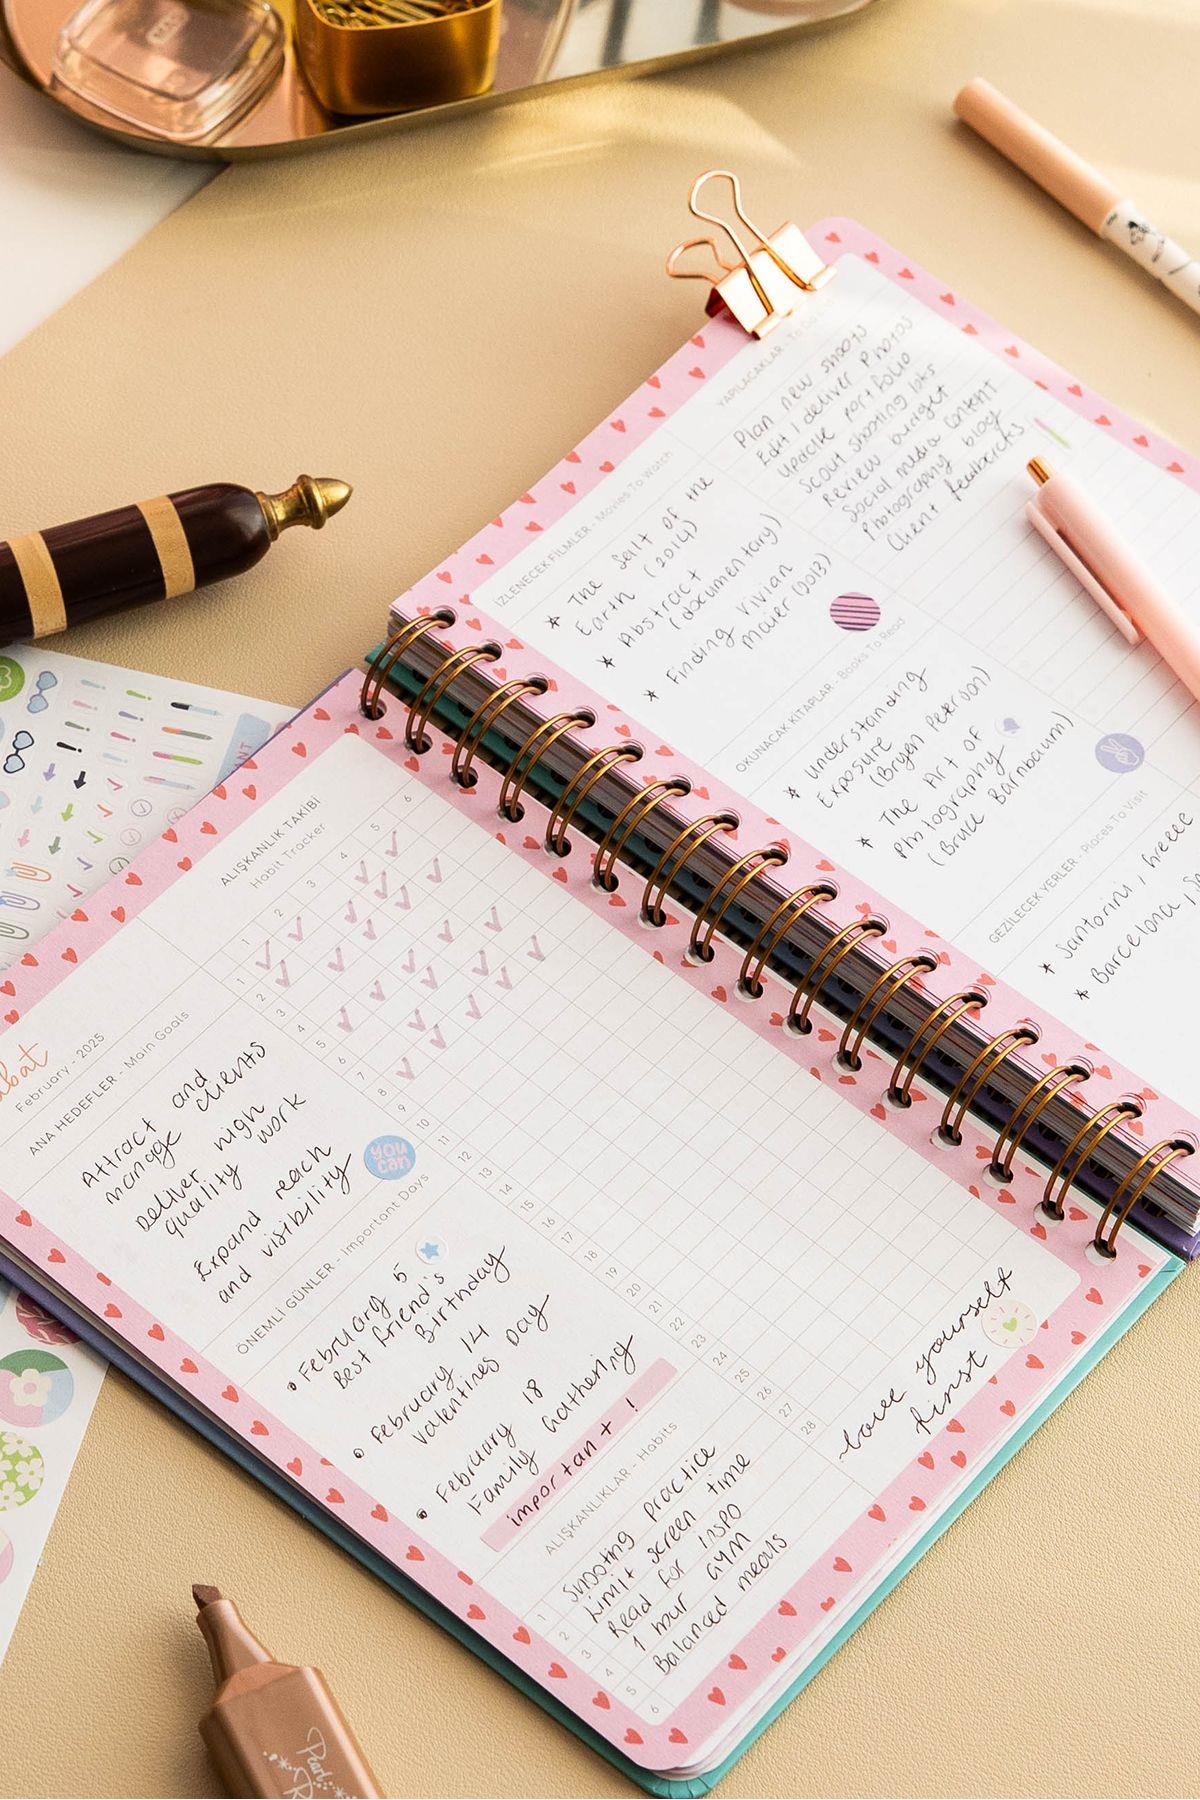 YAPILACAKLAR - To Do
Plan new shoots
Edit / deliver Photos
update portfolio
Scout shooting loks
Review budget
Social media content
Photography blog
Client feedbacks
İZLENECEK FİLMLER - Movies To Watch
* The Salt of the
Earth (2014)
* Abstract
(documentary)
* Finding Vivian
Maier (2013)
OKUNACAK KİTAPLAR - Books To Read
* Understanding
Exposure
(Bryen Peterson)
* The Art of
Photography
(Bruce Barnbaum)
GEZİLECEK YERLER - Places To Visit
* Santorini, Greece
* Barcelona,
February - 2025
ANA HEDEFLER - Main Goals
Attract and
manage clients
Deliver high
quality work
Expand reach
and visibility
you
can
ÖNEMLİ GÜNLER - Important Days
• February 5
Best friend's
Birthday
• February 14
Valentines Day
• February 18
Family Gathering
important !
ALIŞKANLIK TAKİBİ
Habit Tracker
1 2 3 4 5 6
1
2
3
4
5
6
7
8
9
10
11
12
13
14
15
16
17
18
19
20
21
22
23
24
25
26
27
28
ALIŞKANLIKLAR - Habits
1 Shooting practice
2 Limit screen time
3 Read for inspo
4 1 hour gym
5 Balanced meals
6
Love yourself
first
Pearl